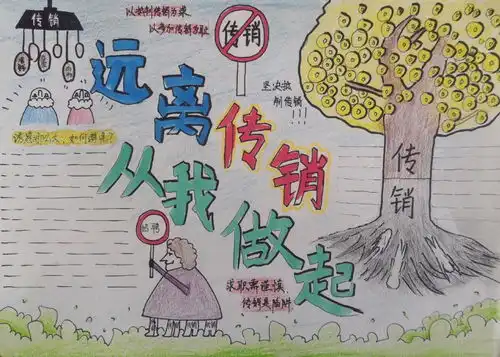 传销
以抵制传销为荣
以参加传销为耻
传销
坚决抵
制传销!!!
远离传销
从我做起
如何避免?
招聘
求职需谨慎
传销是陷阱
传
销